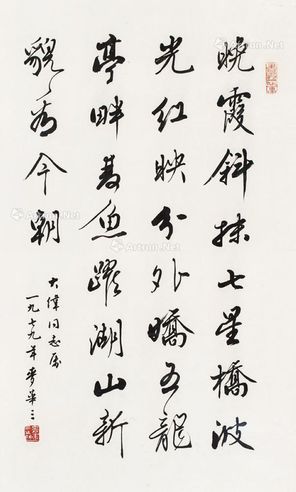 晚霞斜抹七星橋波
光红映分外嬌五龍
亭畔魚躍湖山新
貌看今朝
大偉同志屬
一九七九年 麥華三